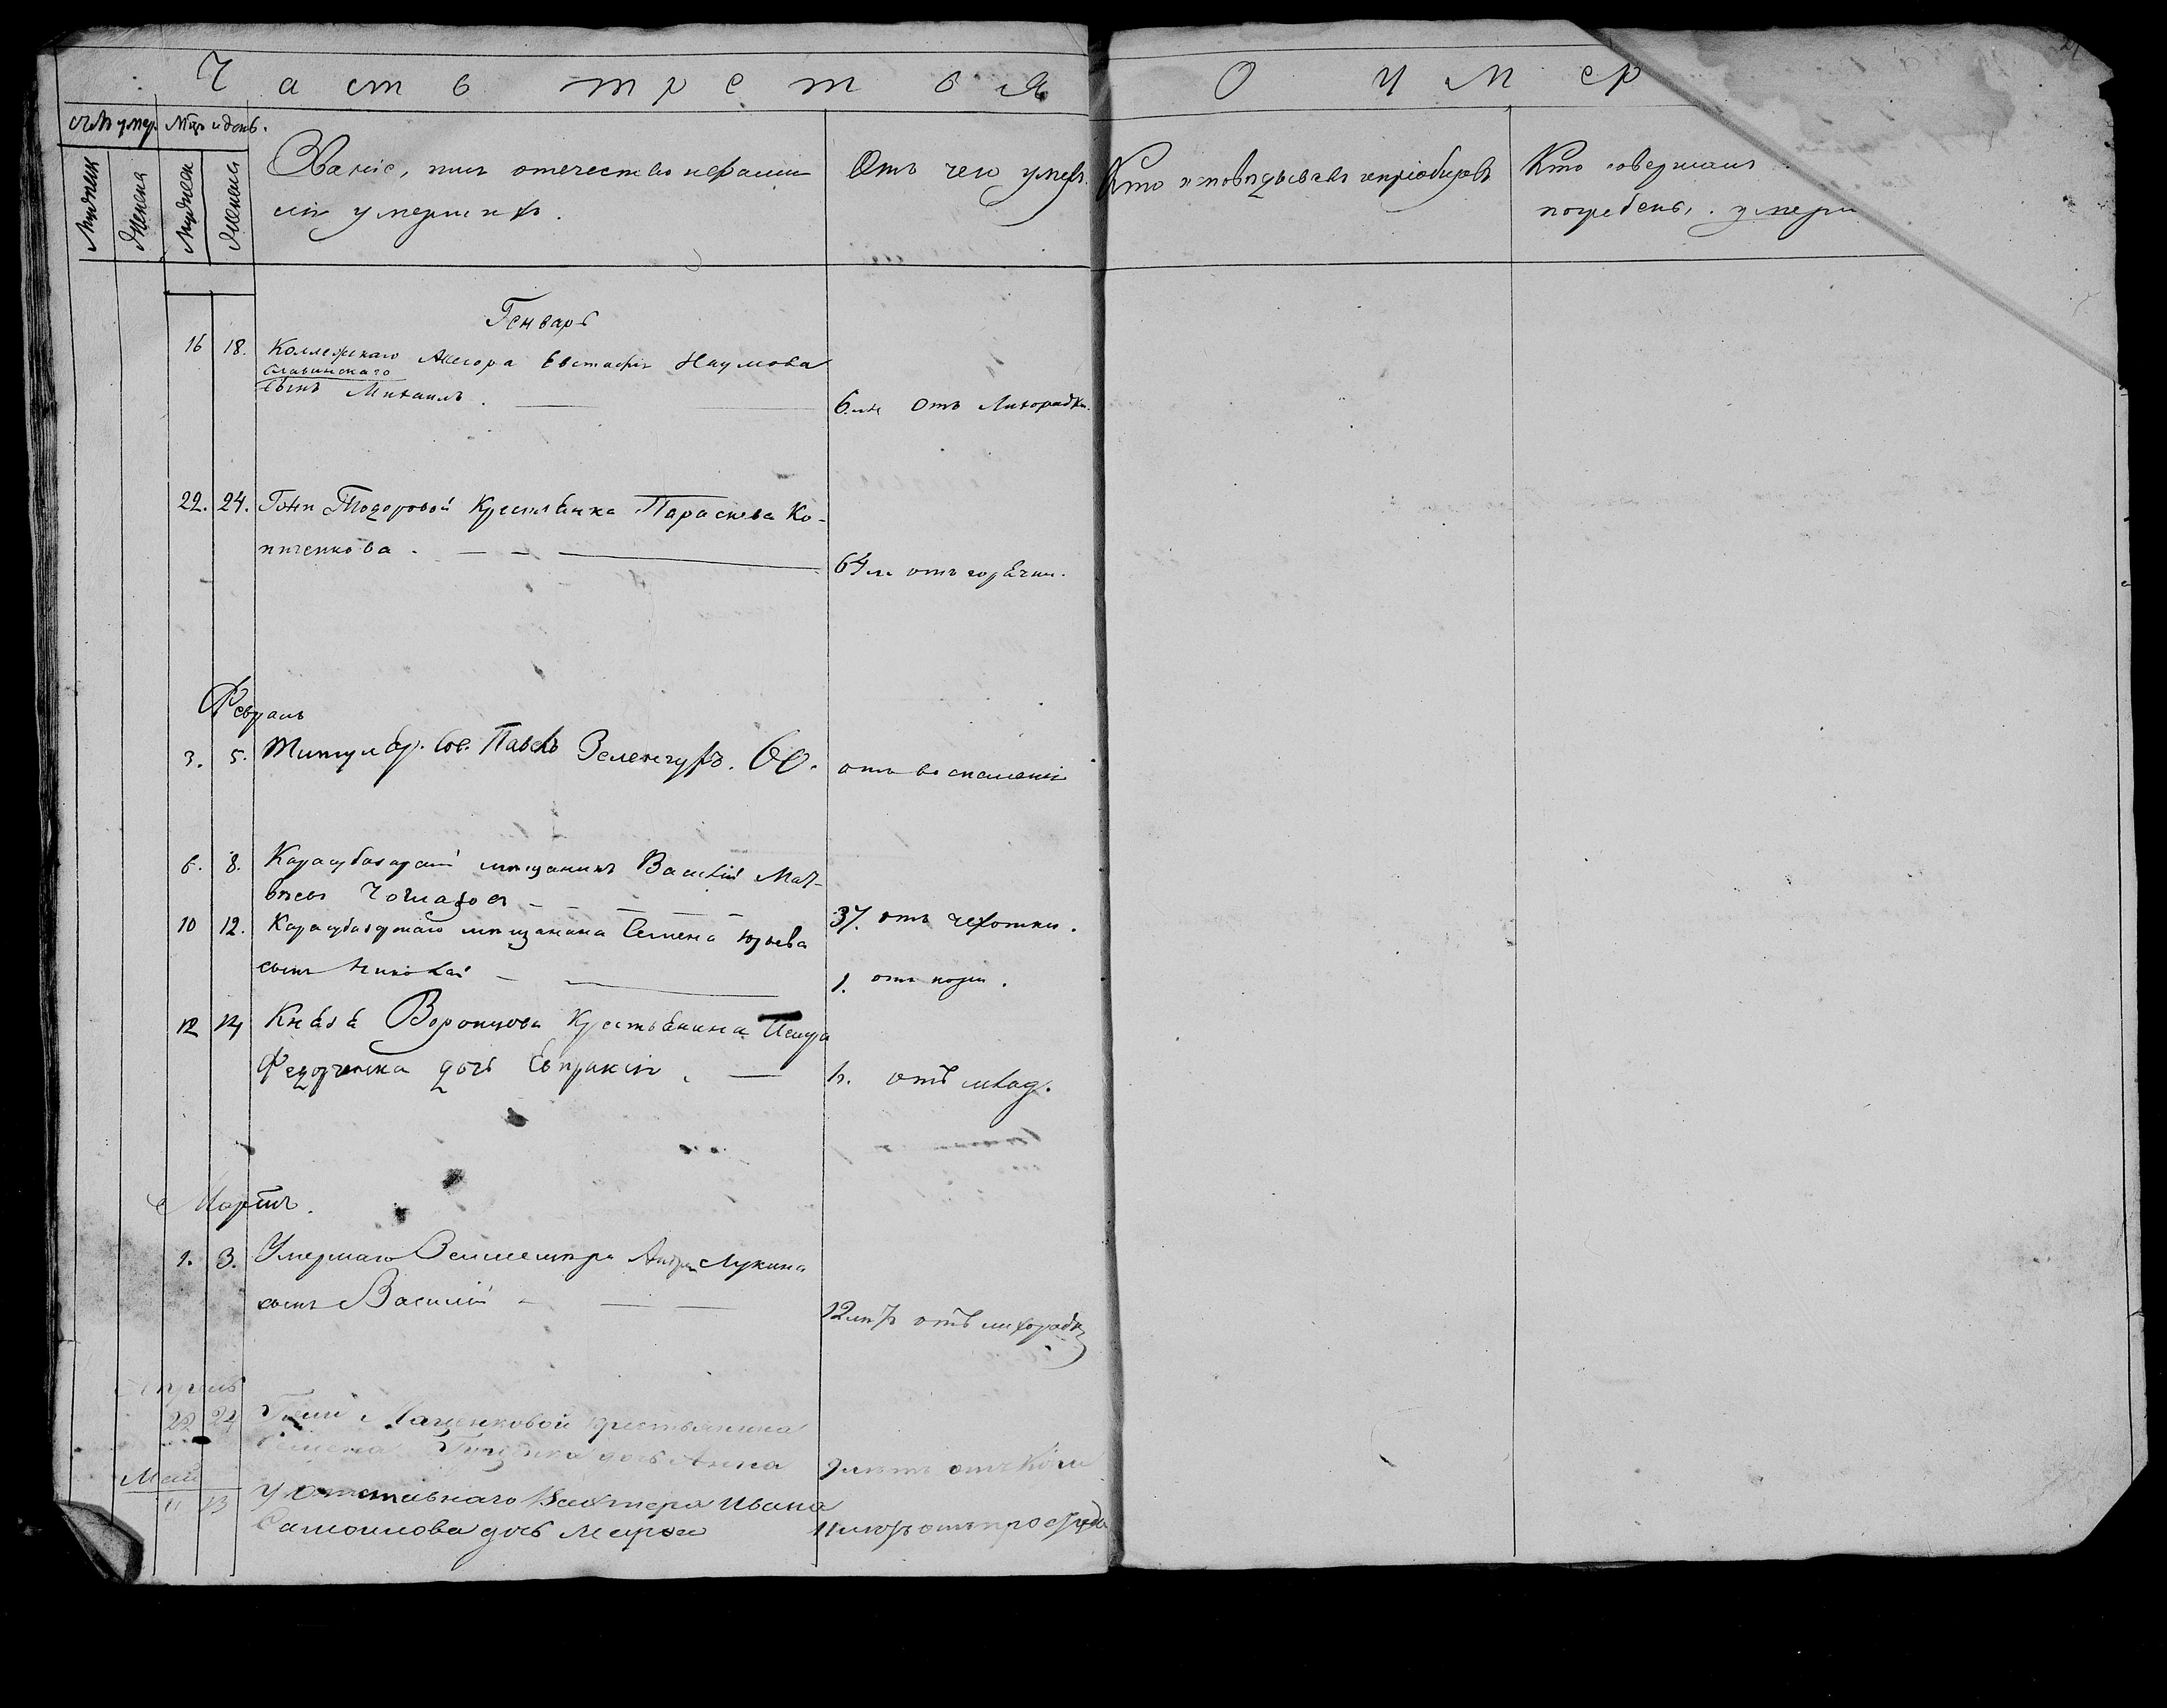 Часть третья О умер
Мѣс. и день.
Званіе, имя отечество и фами
лія умершихъ.
Отъ чего умеръ.
Кто исповѣдывалъ и пріобщалъ
Кто совершалъ
погребеніе умерш
Генварь
16 18. Коллежскаго Асесора Евстафія Наумова
Славинскаго
сынъ Михаилъ. 6 лѣ отъ Лихорадки.
22. 24. Гжи Тодоровой Крестьянка Параскева Ко-
пиченкова. 64 ле отъ горячки.
Февраль
3. 5. Титуляр. Сов. Павелъ 60. отъ воспаленія
6. 8. Карасубазарскій мѣщанинъ Василій Мат-
вѣевъ 37. отъ чехотки.
10 12. Карасубазарскаго мѣщанина Семена Юрьева
сынъ Николай 1. отъ кори.
12 14 Князя Воронцова Крестьянина
Федорченка дочь Евпраксія. отъ млад.
Мартъ.
1. 3. Умершаго Землемѣра Андрея Лукина
сынъ Василій 12 лѣтъ отъ лихорадки
Апрель
22 24 Гжи Маценковой крестьянина
Семена дочь Анна 2 лѣтъ отъ Кори
Май
11 13 У Отставнаго Вахтера Ивана
Самойлова дочь Марья 11 лѣтъ отъ простуды